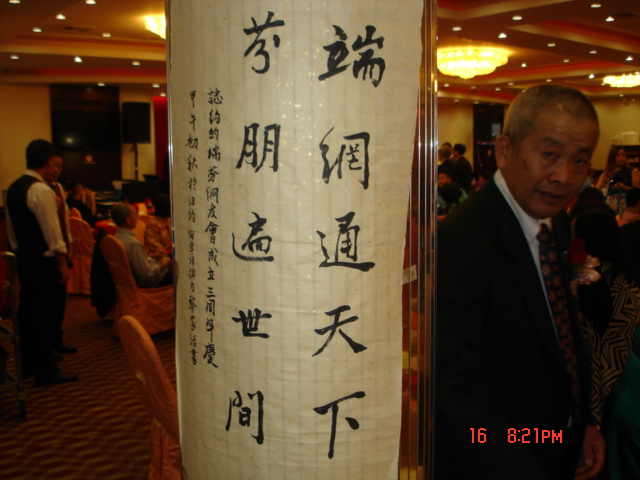 端網通天下
芬朋遍世間
誌紐約端芬網友會成立三周年慶
甲午初秋於紐約
16 8:21PM